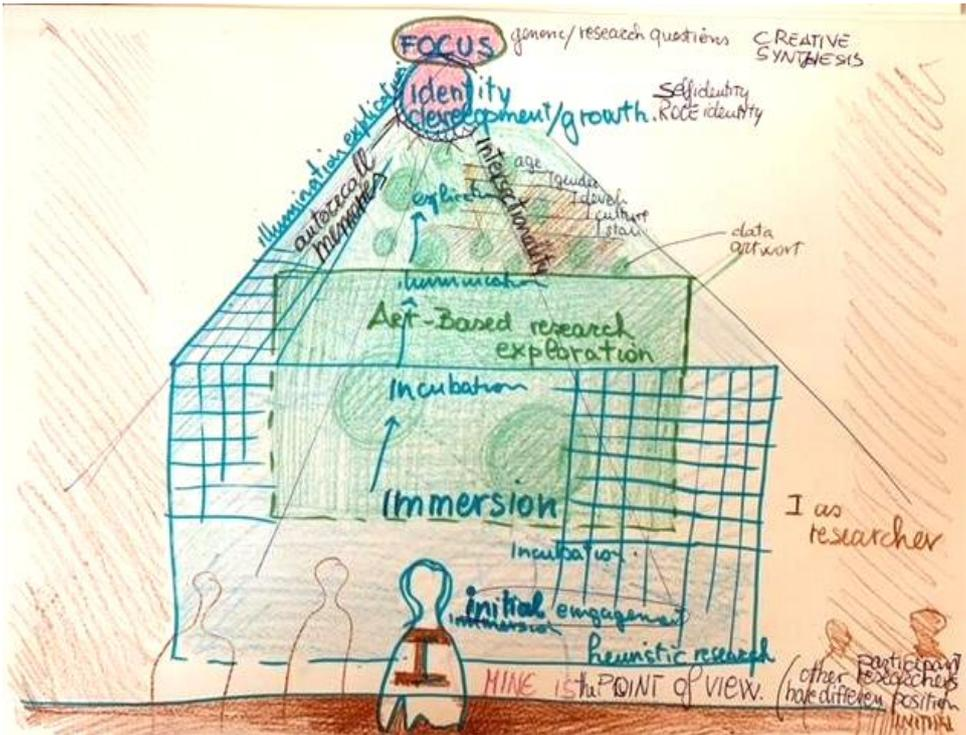 FOCUS
generic/research questions
CREATIVE
SYNTHESIS
identity
development/growth.
Selfidentity
ROLE identity
illumination explication
autorecall
Intersectionality
age
gender
devel.
culture
data
artwort
explication
illumination
Art-Based research
exploration
Incubation
Immersion
Incubation.
I as
researcher
initial engagement
immersion
heuristic research
I
MINE is the POINT of VIEW.
participant
(other researchers
have different position